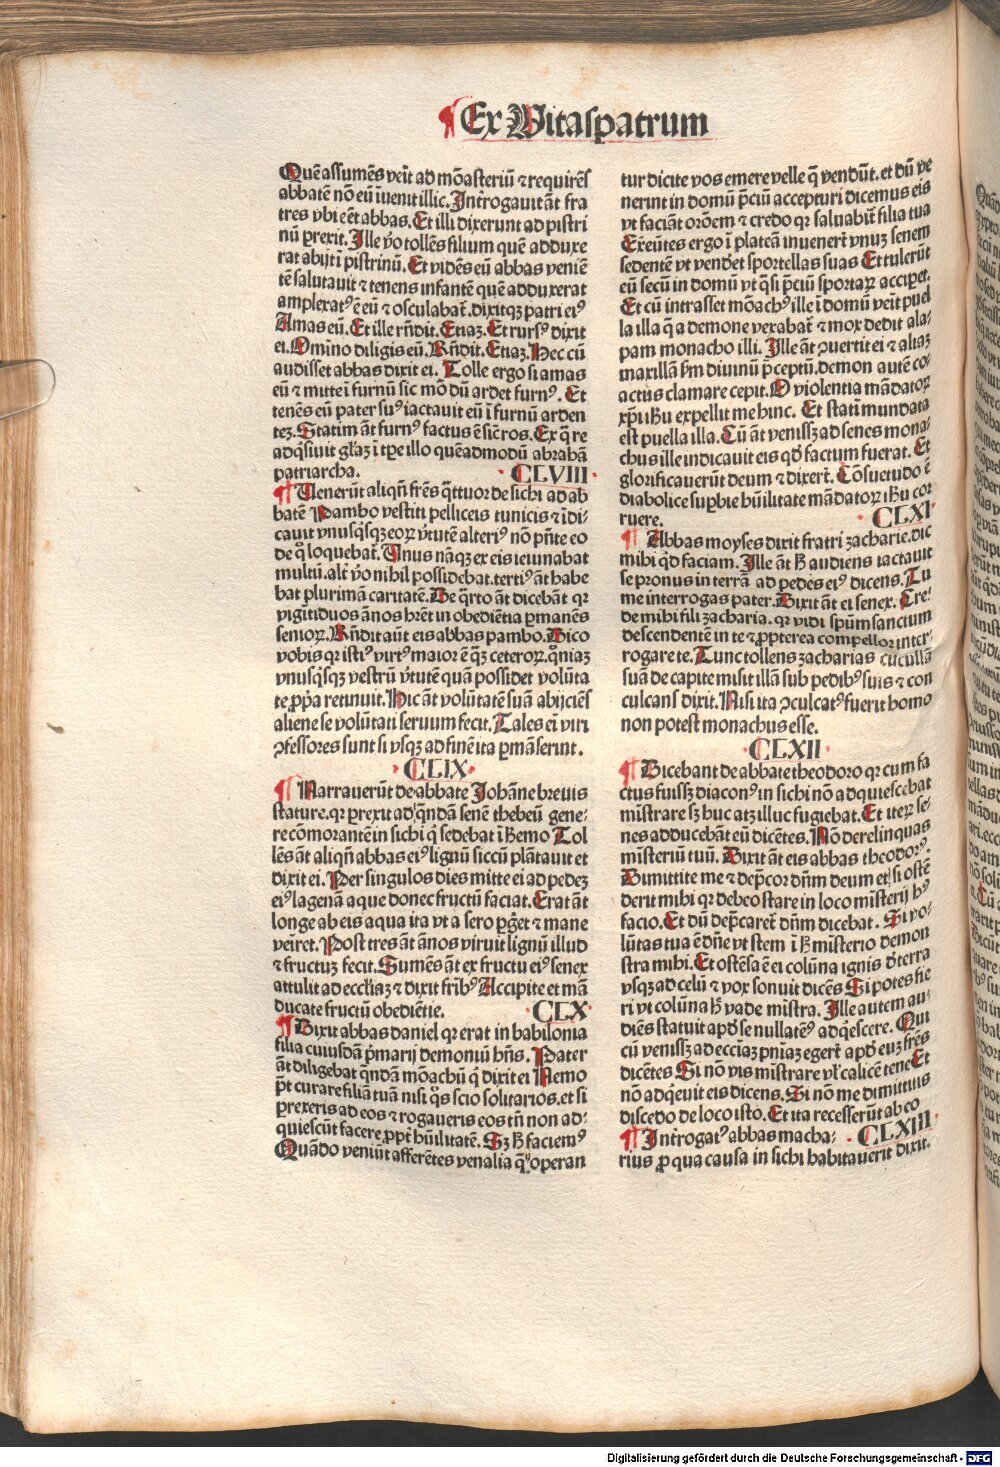 Ex Vitaspatrum
Quē assumēs veīt ad mōasteriū ⁊ requirēs
abbatē nō eū īuenit illic. Introgauit āt fra
tres vbi eēt abbas. Et illi dixerunt ad pistri
nū ꝑrexit. Ille ṽo tollēs filium quē adduxe
rat abijt ī pistrinū. Et vidēs eū abbas veniē
tē salutauit ⁊ tenens infantē quē adduxerat
amplexatꝰ ē eū ⁊ osculabat̄. dixitqꝫ patri eiꝰ
Amas eū. Et ille rn̄dit. Etiaꝫ. Et rursꝰ dixit
ei. Omīno diligis eū. Rn̄dit. Etiaꝫ. Hec cū
audisset abbas dixit ei. Tolle ergo si amas
eū ⁊ mitte ī furnū sic mō dū ardet furnꝰ. Et
tenēs eū pater suꝰ iactauit eū ī furnū arden
teꝫ. Statim āt furnꝰ factus ē sic̄ ros. Ex q̄ re
adq̄siuit gl̄aꝫ ī tꝑe illo quēadmodū abrahā
patriarcha. CLVIII
¶ Uenerūt aliqn̄ frēs q̄ttuor de sichi ad ab
batē Pambo vestiti pelliceis tunicis ⁊ īdi-
cauit vnusq̄sqꝫ eoꝝ v̄tutē alteriꝰ nō pn̄te eo
de q̊ loquebat̄. Unus nāqꝫ ex eis ieiunabat
multū. alt̄ ṽo nihil possidebat. tertiꝰ āt habe
bat plurimā caritatē. De q̄rto āt dicebāt qꝛ
vigīti duos ānos hr̄et in obediētia ꝑmanēs
senioꝝ. Rn̄dit aūt eis abbas pambo. Dico
vobis qꝛ istiꝰ virtꝰ maior ē q̄ꝫ ceteroꝝ. qm̄iaꝫ
vnusq̄sqꝫ vestrū v̄tutē quā possidet volūta
te ꝓpa retinuit. Hic āt volūtatē suā abijciēs
aliene se volūtati seruum fecit. Tales eī viri
ꝯfessores sunt si vsqꝫ ad finē ita ꝑmāserint.
CLIX
¶ Narrauerūt de abbate Johāne breuis
stature. qꝛ ꝑrexit ad q̄ndā senē thebeū gene-
re cōmorantē in sichi q̇ sedebat ī h̄emo Tol
lēs āt aliqn̄ abbas eiꝰ lignū siccū plātauit et
dixit ei. Per singulos dies mitte ei ad pedeꝫ
eiꝰ lagenā aque donec fructū faciat. Erat āt
longe ab eis aqua ita vt a sero ꝑg̃et ⁊ mane
veiret. Post tres āt ānos viruit lignū illud
⁊ fructuꝫ fecit. Sumēs āt ex fructu eiꝰ senex
attulit ad eccl̄iaꝫ ⁊ dixit frībꝰ Accipite et mā
ducate fructū obediētie. CLX
¶ Dixit abbas daniel qꝛ erat in babilonia
filia cuiusdā p̄marij demoniū hn̄s. Pater
āt diligebat q̄ndā mōachū q̇ dixit ei Nemo
p̄t curare filiā tuā nisi q̊s scio solitarios. et si
ꝑrexeris ad eos ⁊ rogaueris eos tn̄ non ad-
quiescūt facere ꝓpt̄ hūilitatē. Sꝫ h̄ faciemꝰ
Quādo veniūt afferētes venalia q̄ operan
tur dicite vos emere velle q̄ vendūt. et dū ve
nerint in domū p̄ciū accepturi dicemus eis
vt faciāt orōem ⁊ credo qꝛ saluabit̄ filia tua
Exeūtes ergo ī plateā inuenerūt vnuꝫ senem
sedentē vt vend̄et sportellas suas Et tulerūt
eū secū in domū vt q̄si p̄ciū sportaꝝ acciꝑet.
Et cū intrasset mōachꝰ ille ī domū veīt puel
la illa q̄ a demone vexabat̄ ⁊ mox dedit ala-
pam monacho illi. Ille āt ꝯuertit ei ⁊ aliaꝫ
maxillā ẜm diuinū p̄ceptū. demon autē co-
actus clamare cepit. O violentia mādatoꝝ
xp̄i ih̄u expellit me hinc. Et statī mundata
est puella illa. Cū āt venissꝫ ad senes mona-
chus ille indicauit eis qd̄ factum fuerat. Et
glorificauerūt deum ⁊ dixerūt. Cōsuetudo ē
diabolice suꝑbie hūilitate mādatoꝝ ih̄u cor
ruere. CLXI
¶ Abbas moyses dixit fratri zacharie. dic
mihi qd̄ faciam. Ille āt h̄ audiens iactauit
se pronus in terrā ad pedes eiꝰ dicens. Tu
me interrogas pater. Dixit āt ei senex. Cre-
de mihi fili zacharia. qꝛ vidi spūm sanctum
descendentē in te ⁊ ꝓpterea compellor inter-
rogare te. Tunc tollens zacharias cucullā
suā de capite misit illā sub pedibꝰ suis ⁊ con
culcans dixit. Nisi ita ꝯculcatꝰ fuerit homo
non potest monachus esse.
CLXII
¶ Dicebant de abbate theodoro qꝛ cum fa
ctus fuissꝫ diaconꝰ in sichi nō adquiescebat
mīstrare sꝫ huc atqꝫ illuc fugiebat. Et iteꝝ se-
nes adducebāt eū dicētes. Nō derelinquas
mīsteriū tuū. Dixit āt eis abbas theodorꝰ.
Dimittite me ⁊ dep̄cor dn̄m deum et si ostē
derit mihi qꝛ debeo stare in loco mīsterij hꝰ
facio. Et dū dep̄caret̄ dn̄m dicebat. Si vo-
lūtas tua ē dn̄e vt stem ī h̄ mīsterio demon
stra mihi. Et ostēsa ē ei colūna ignis d̄ terra
vsqꝫ ad celū ⁊ vox sonuit dicēs Si potes fie
ri vt colūna h̄ vade mīstra. Ille autem au-
diēs statuit apd̄ se nullatēꝰ adq̄escere. Qui
cū venissꝫ ad ecciaꝫ pn̄iaꝫ egerūt apd̄ euꝫ frēs
dicētes Si nō vis mīstrare vl̄ calicē tene Et
nō adq̄euit eis dicens. Si nō me dimittitis
discedo de loco isto. Et ita recesserūt ab eo
¶ Intr̄ogatꝰ abbas macha- CLXIII
rius ꝓ qua causa in sichi habitauerit dixit.
Digitalisierung gefördert durch die Deutsche Forschungsgemeinschaft - DFG